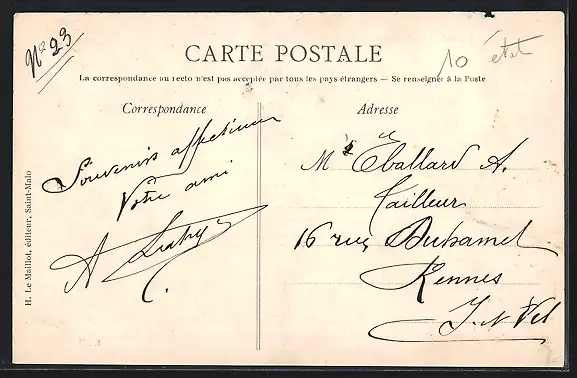 No 23
CARTE POSTALE
10 état
La correspondance au recto n'est pas acceptée par tous les pays étrangers — Se renseigner à la Poste
Correspondance
Souvenirs affectueux
Votre ami
A
Adresse
Mr Eballard A.
Tailleur
16 rue Duhamel
Rennes
I et Vil
H. Le Maillot, éditeur, Saint-Malo